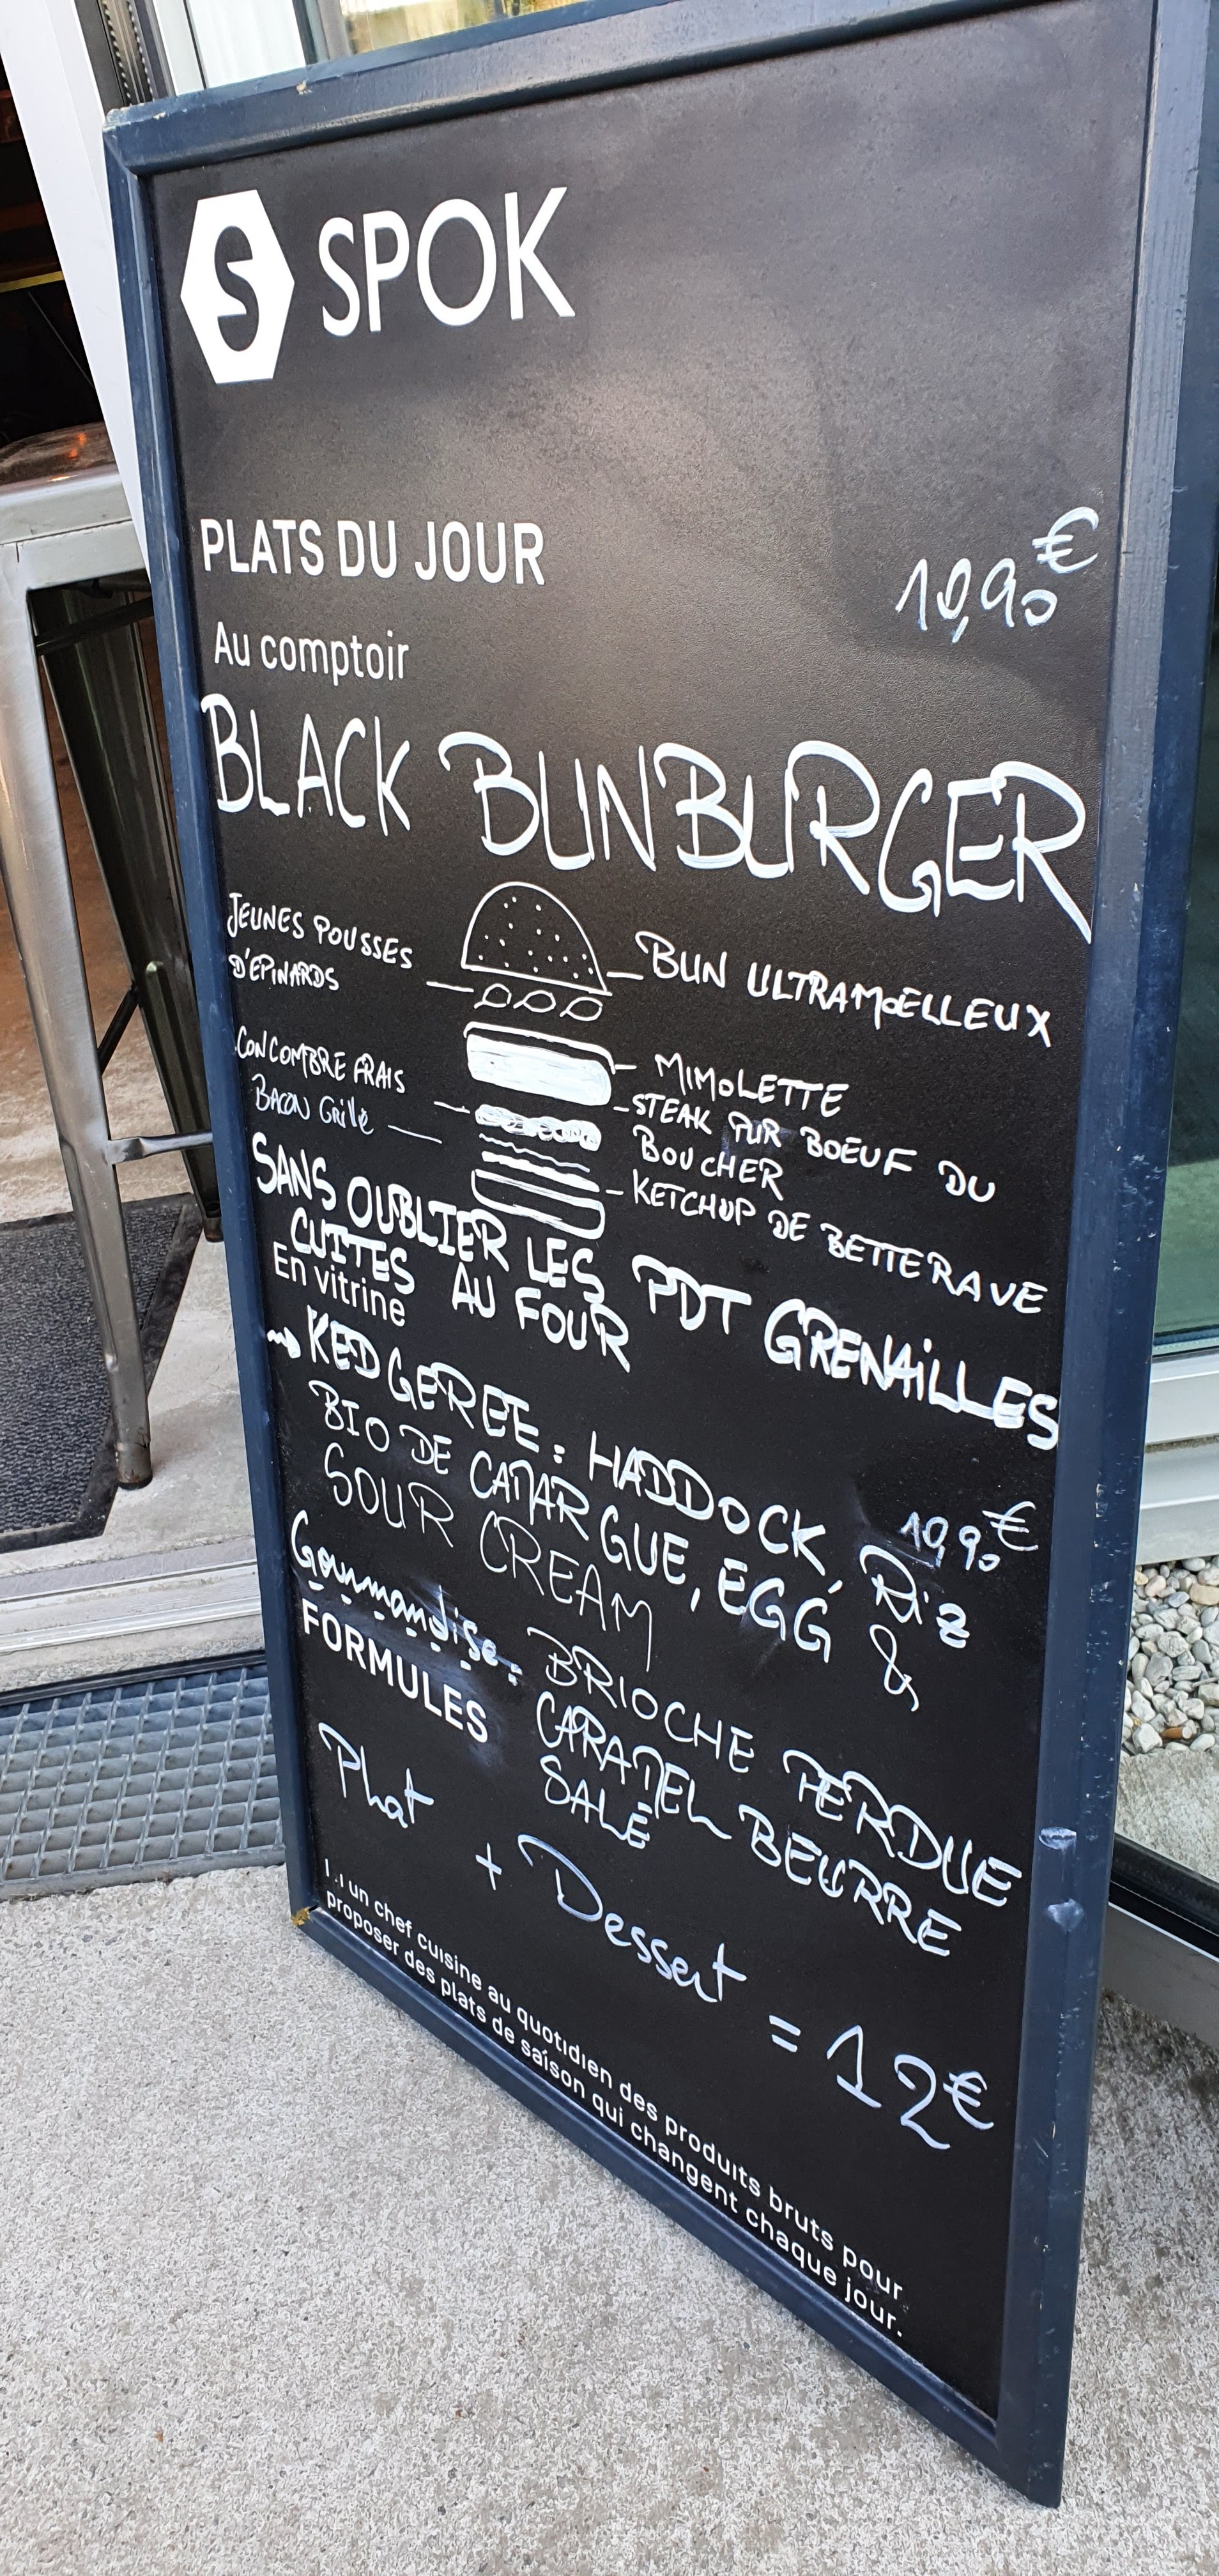 S SPOK
PLATS DU JOUR
10,90€
Au comptoir
BLACK BUNBURGER
JEUNES POUSSES
D'EPINARDS
BUN ULTRAMOELLEUX
CONCOMBRE FRAIS
BACON Grillé
MIMOLETTE
STEAK PUR BOEUF DU
BOUCHER
KETCHUP DE BETTERAVE
SANS OUBLIER LES PDT GRENAILLES
CUITES AU FOUR
En vitrine
KEDGEREE: HADDOCK, Riz
10,90€
BIO DE CAMARGUE, EGG &
SOUR CREAM
Gourmandise: BRIOCHE PERDUE
CARAMEL BEURRE
SALÉ
FORMULES
Plat + Dessert = 12€
un chef cuisine au quotidien des produits bruts pour
proposer des plats de saison qui changent chaque jour.